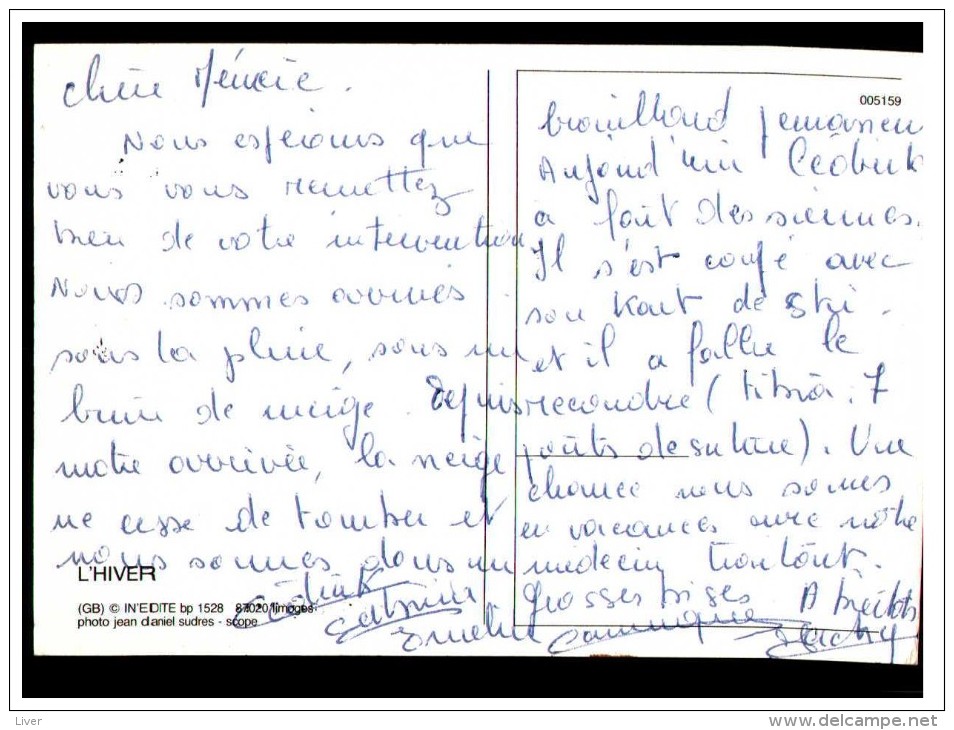 Chère
Nous espérons que
vous vous remettez
bien de votre intervention
Nous sommes arrivés
sous la pluie, sous un
brin de neige. Depuis
notre arrivée, la neige
ne cesse de tomber et
nous sommes dans un
L'HIVER
(GB) © IN'EDITE bp 1528 87020 limoges
photo jean daniel sudres - scope
005159
brouillard
Aujourd'hui Cédrick
a fait des siennes.
Il s'est coupé avec
son kart de ski.
et il a fallu le
recoudre (tibia : 7
points de suture). Une
chance nous sommes
en vacances avec notre
médecin traitant.
Grosses bises. A bientôt
Cédrick
Emeline
Liver
delcampe.net